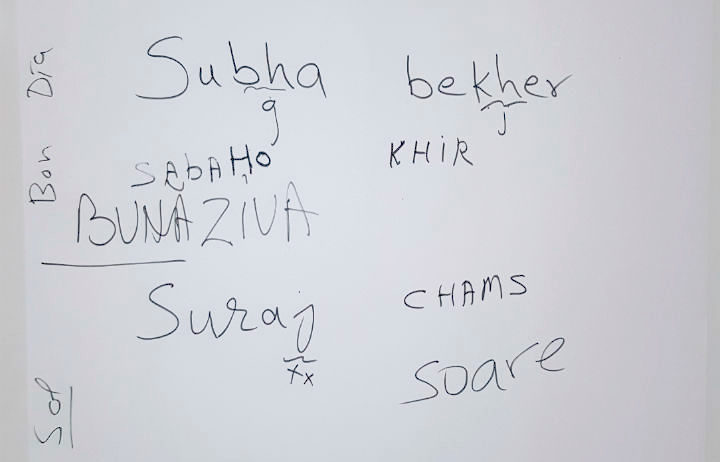 Bon Dia
Subha bekher
g j
SabaHo KHiR
BUNA ZIUA
Suraj CHAMS
xx soare
Sol